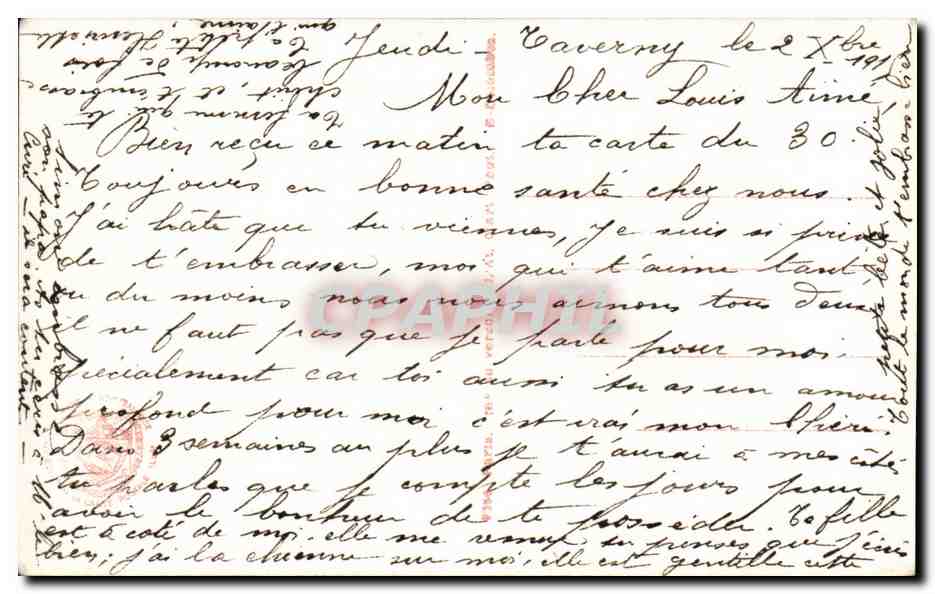 Jeudi - Taverny le 2 Xbre 191
Mon Cher Louis Aimé,
Bien reçu ce matin ta carte du 30.
Toujours en bonne santé chez nous.
J'ai hâte que tu viennes, Je suis si
de t'embrasser, moi qui t'aime tant
ou du moins nous nous aimons tous deux
il ne faut pas que je parle pour moi
spécialement car toi aussi tu as un amour
profond pour moi c'est vrai mon Chéri.
Dans 3 semaines au plus je t'aurai à mes côtés
tu parles que je compte les jours pour
avoir le bonheur de te posséder. Ta fille
est à côté de moi, elle me tu penses que j'écris
bien; j'ai la chienne sur moi, elle est gentille cette
petite bête et jolie,
Tout le monde t'embrasse bien
Simone embrasse
son papa, si tu écris à
il sera content -
Ta femme qui te
chérit, et t'embrasse
beaucoup de fois
Ta petite Henriette
qui t'aime,
CPARAMA